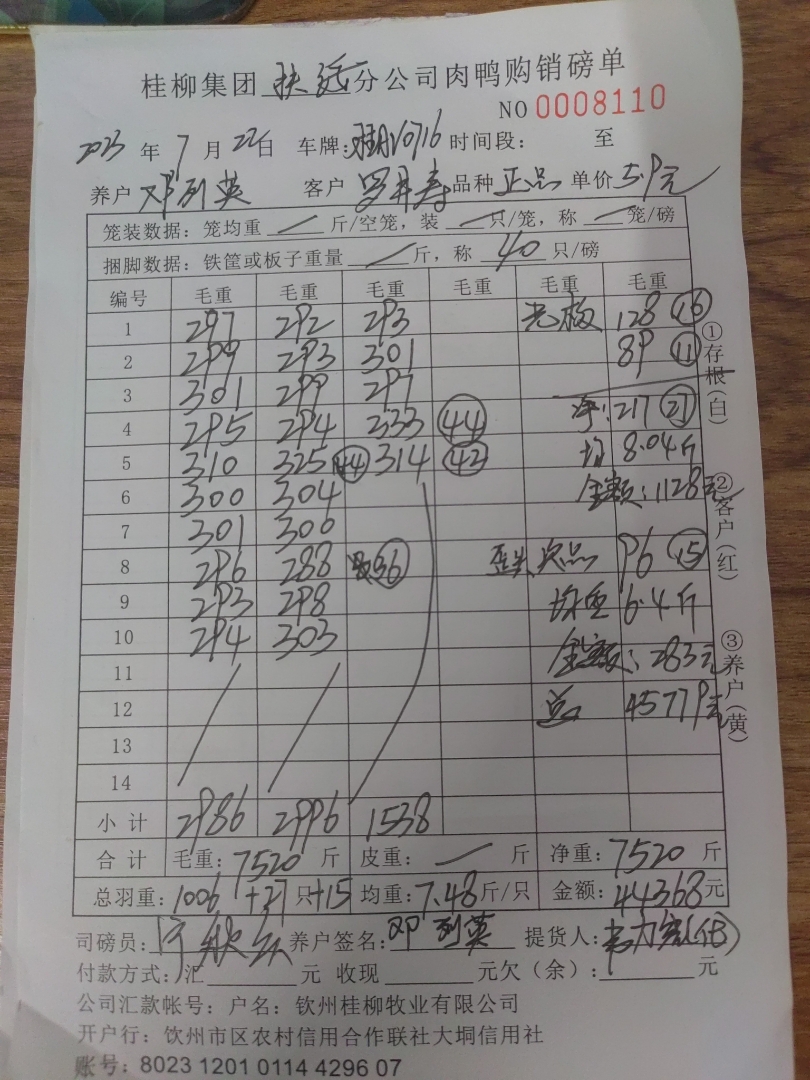 桂柳集团 扶绥 分公司肉鸭购销磅单
NO 0008110
2023 年 7 月 22 日 车牌: 0716 时间段: 至
养户 邓列英 客户 罗寿 品种 正品 单价 5.9元
笼装数据: 笼均重 / 斤/空笼, 装 / 只/笼, 称 / 笼/磅
捆脚数据: 铁筐或板子重量 / 斤, 称 40 只/磅
编号 毛重 毛重 毛重 毛重 毛重 毛重
1 297 292 293 光板 128 ⑯
2 299 293 301 89 ⑪
3 301 299 297
4 295 294 333 ㊹ 净: 217 ㉗
5 310 325 ㊹ 314 ㊷ 均 8.04斤
6 300 304 金额: 1128元
7 301 300
8 296 288 ㊱ 次品 96 ⑮
9 293 298 均重 6.4斤
10 294 303 金额: 283元
11
12 总 45779元
13
14
小计 2986 2996 1538
合计 毛重: 7520 斤 皮重: / 斤 净重: 7520 斤
总羽重: 1006 +27 只+15 均重: 7.48 斤/只 金额: 44368 元
司磅员: 养户签名: 邓列英 提货人:
付款方式: 汇 元 收现 元欠(余): 元
公司汇款帐号: 户名: 钦州桂柳牧业有限公司
开户行: 饮州市区农村信用合作联社大垌信用社
账号: 8023 1201 0114 4296 07
①存根(白)
②客户(红)
③养户(黄)